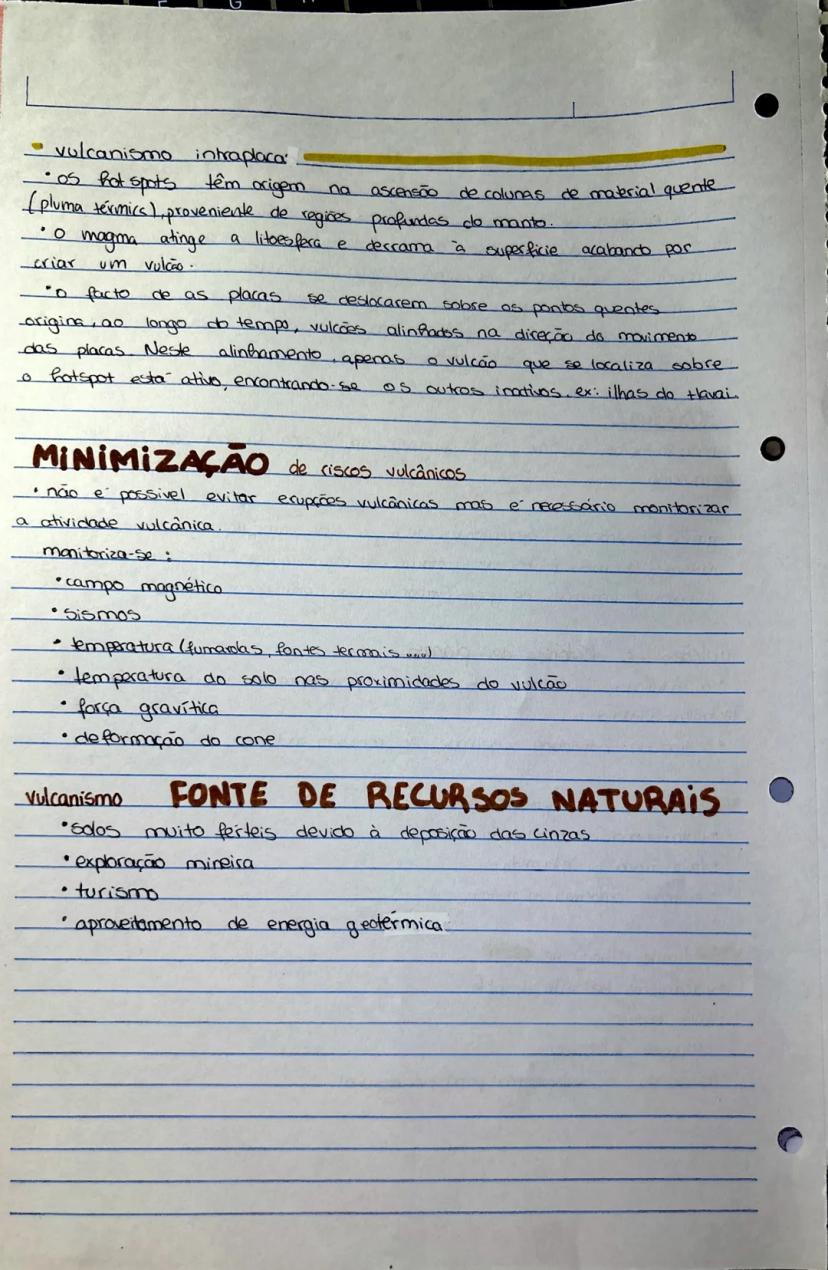 • vulcanismo intraplaca:
• os hot spots têm origem na ascensão de colunas de material quente
(pluma térmics), proveniente de regiões profundas do manto.
• o magma atinge a litoesfera e derrama à superfície acabando por
criar um vulcão.
• o facto de as placas se deslocarem sobre os pontos quentes
origina, ao longo do tempo, vulcões alinhados na direção do movimento
das placas. Neste alinhamento, apenas o vulcão que se localiza sobre
o hotspot está ativo, encontrando-se os outros inativos. ex: ilhas do Havai.
MINIMIZAÇÃO de riscos vulcânicos
• não é possivel evitar erupções vulcânicas mas é necessário monitorizar
a atividade vulcânica.
monitoriza-se:
• campo magnético
• sismos
• temperatura (fumarolas, fontes termais ....)
• temperatura do solo nas proximidades do vulcão
• força gravítica
• deformação do cone
vulcanismo FONTE DE RECURSOS NATURAIS
• solos muito férteis devido à deposição das cinzas
• exploração mineira
• turismo
• aproveitamento de energia geotérmica.